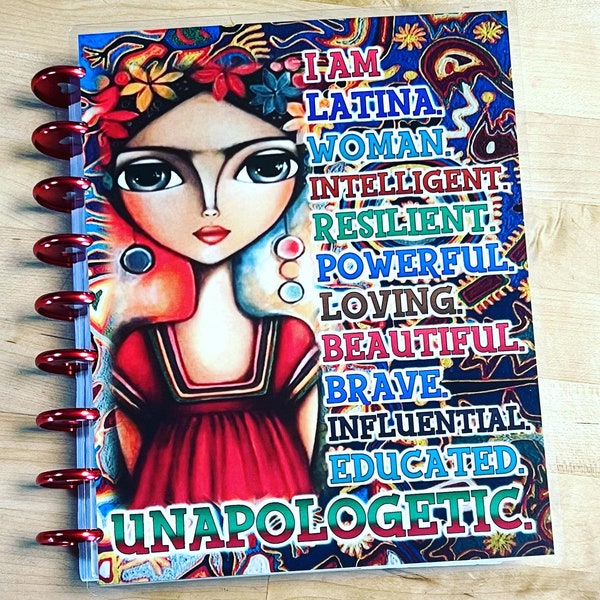 I AM
LATINA.
WOMAN.
INTELLIGENT.
RESILIENT.
POWERFUL.
LOVING.
BEAUTIFUL.
BRAVE.
INFLUENTIAL.
EDUCATED.
UNAPOLOGETIC.